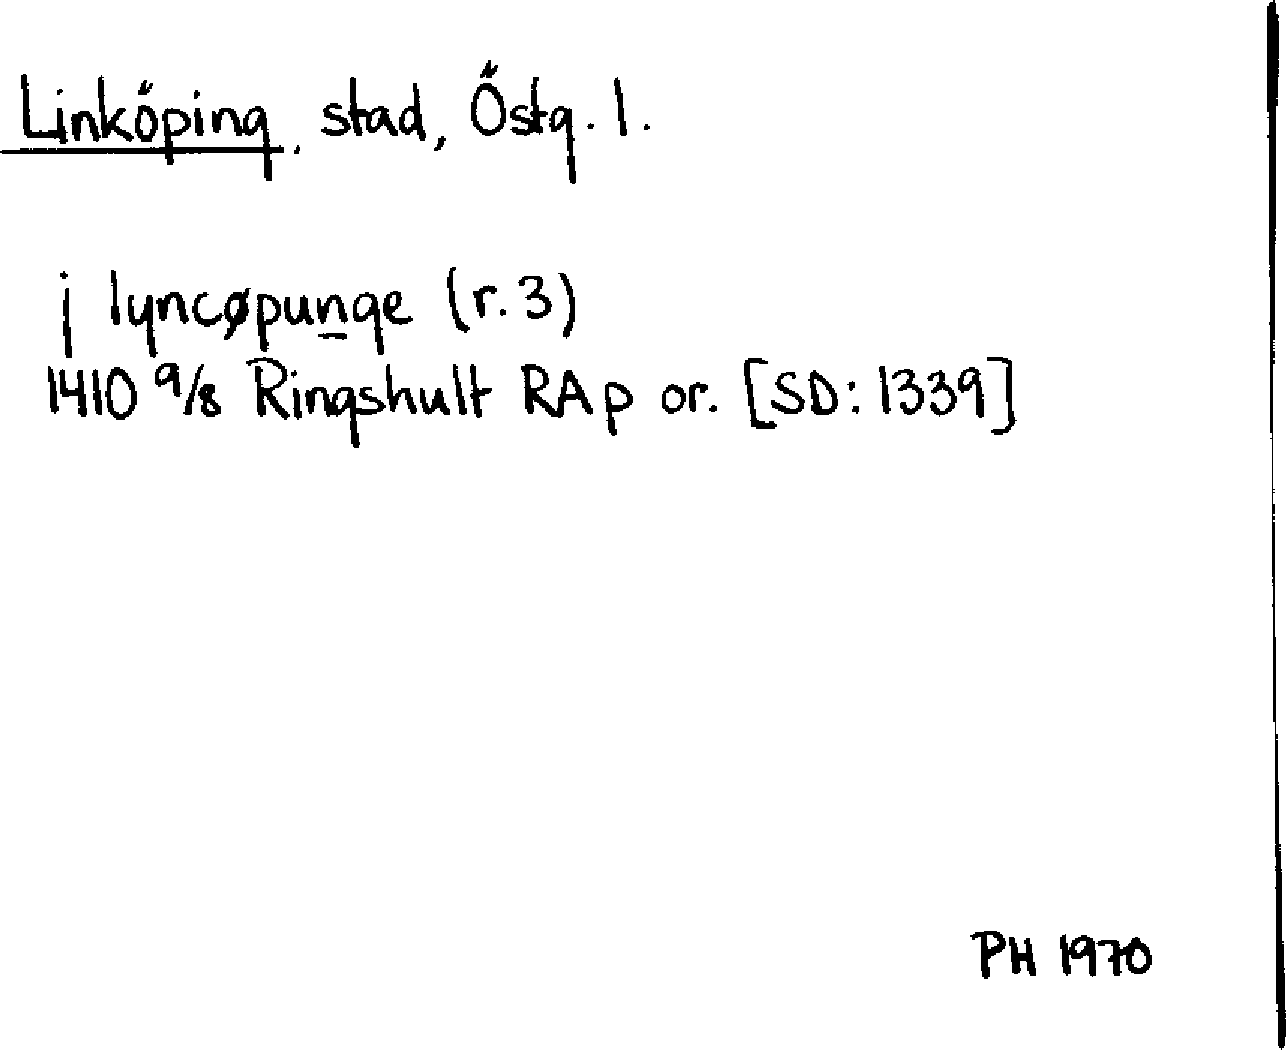 Linköping, stad, Östg. l.
j lyncøpunge (r. 3)
1410 9/8 Ringshult RAp or. [SD: 1339]
PH 1970